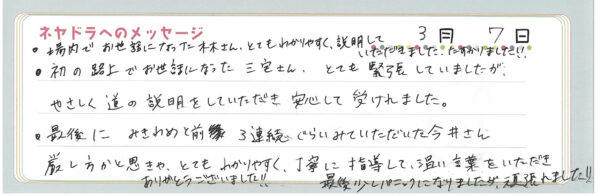 ネヤドラへのメッセージ
3月 7日
・場内でお世話になった林さん、とてもわかりやすく、説明して
いただきました。たすかりました!!
・初の路上でお世話になった三宅さん、とても緊張していましたが、
やさしく道の説明をしていただき安心して受けれました。
・最後にみきわめと前 3連続ぐらいみていただいた今井さん
厳しい方かと思きや、とてもわかりやすく、丁寧に指導して、温い言葉をいただき
ありがとうございました!!
最後少しパニックになりましたが、頑張れました!!